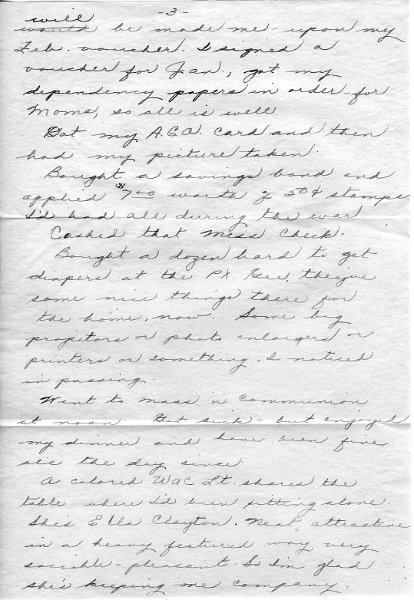 - 3 -
will
would be made me upon my
Feb. voucher. I signed a
voucher for Jan., got my
dependency papers in order for
Moms, so all is well
Got my A.G.O. card and then
had my picture taken.
Bought a savings bond and
applied $7.00 worth of 50¢ stamps
I'd had all during the war
Cashed that Mess Check.
Bought a dozen hard to get
diapers at the PX. Gee, theyve
some nice things there for
the home, now. Some big
projetors or photo enlargers or
printers or something. I noticed
in passing.
Went to mass 'n Communion
at noon Got sick - but enjoyed
my dinner and have been fine
all the day since
A colored WAC Lt. shares the
table where I'd been sitting alone.
She's Ella Clayton. Neat, attractive
in a heavy featured way, very
sociable - pleasant. So I'm glad
she's keeping me company.